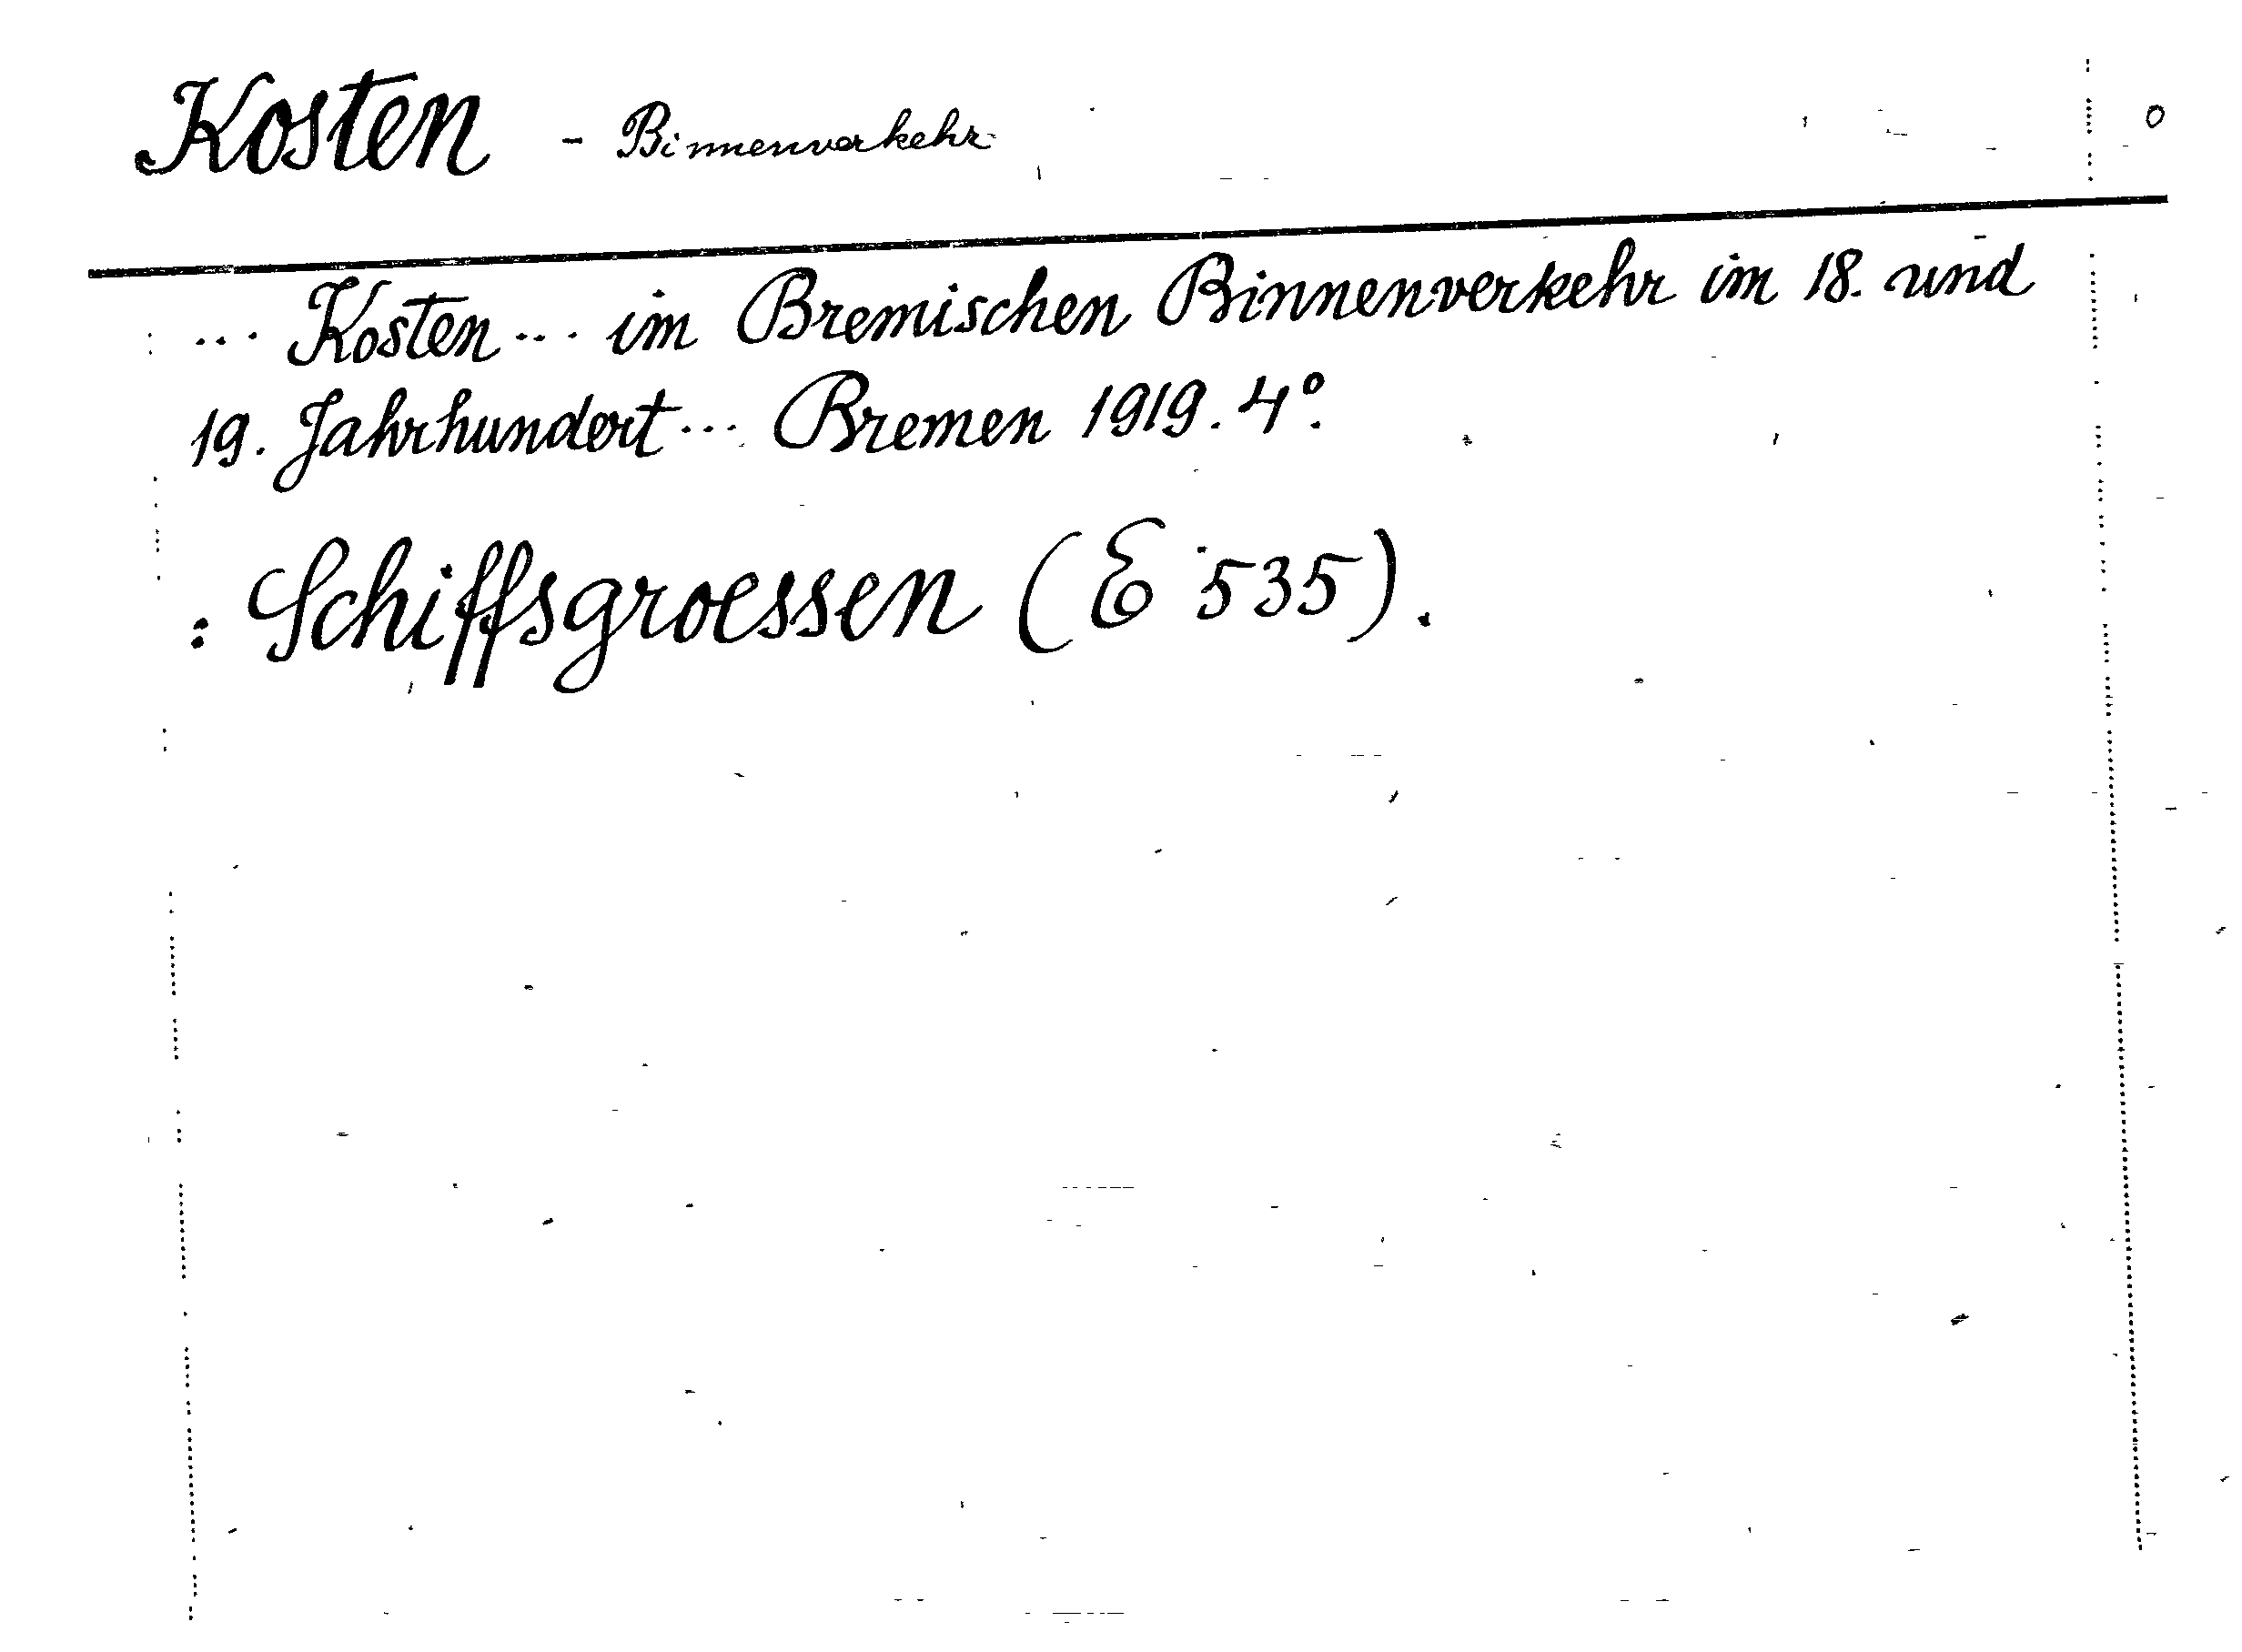 Kosten - Binnenverkehr 0
... Kosten ... im Bremischen Binnenverkehr im 18. und
19. Jahrhundert ... Bremen 1919. 4°.
: Schiffsgroessen (E 535).